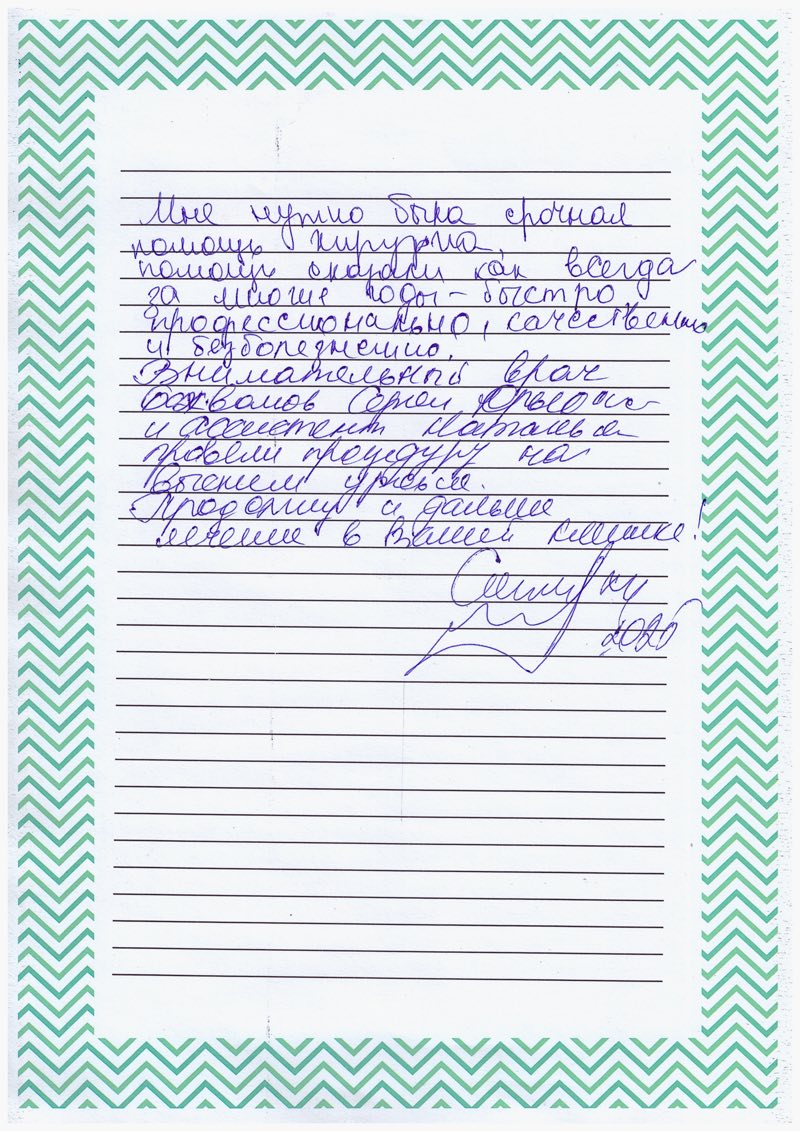 Мне нужно была срочная
помощь хирурга.
помощь оказали как всегда
за многие годы - быстро
профессионально, качественно
и безболезненно.
Внимательный врач
Сергей
и ассистент Наталья
провели процедуру на
высшем уровне.
Продолжу и дальше
лечение в Вашей клинике!
2026